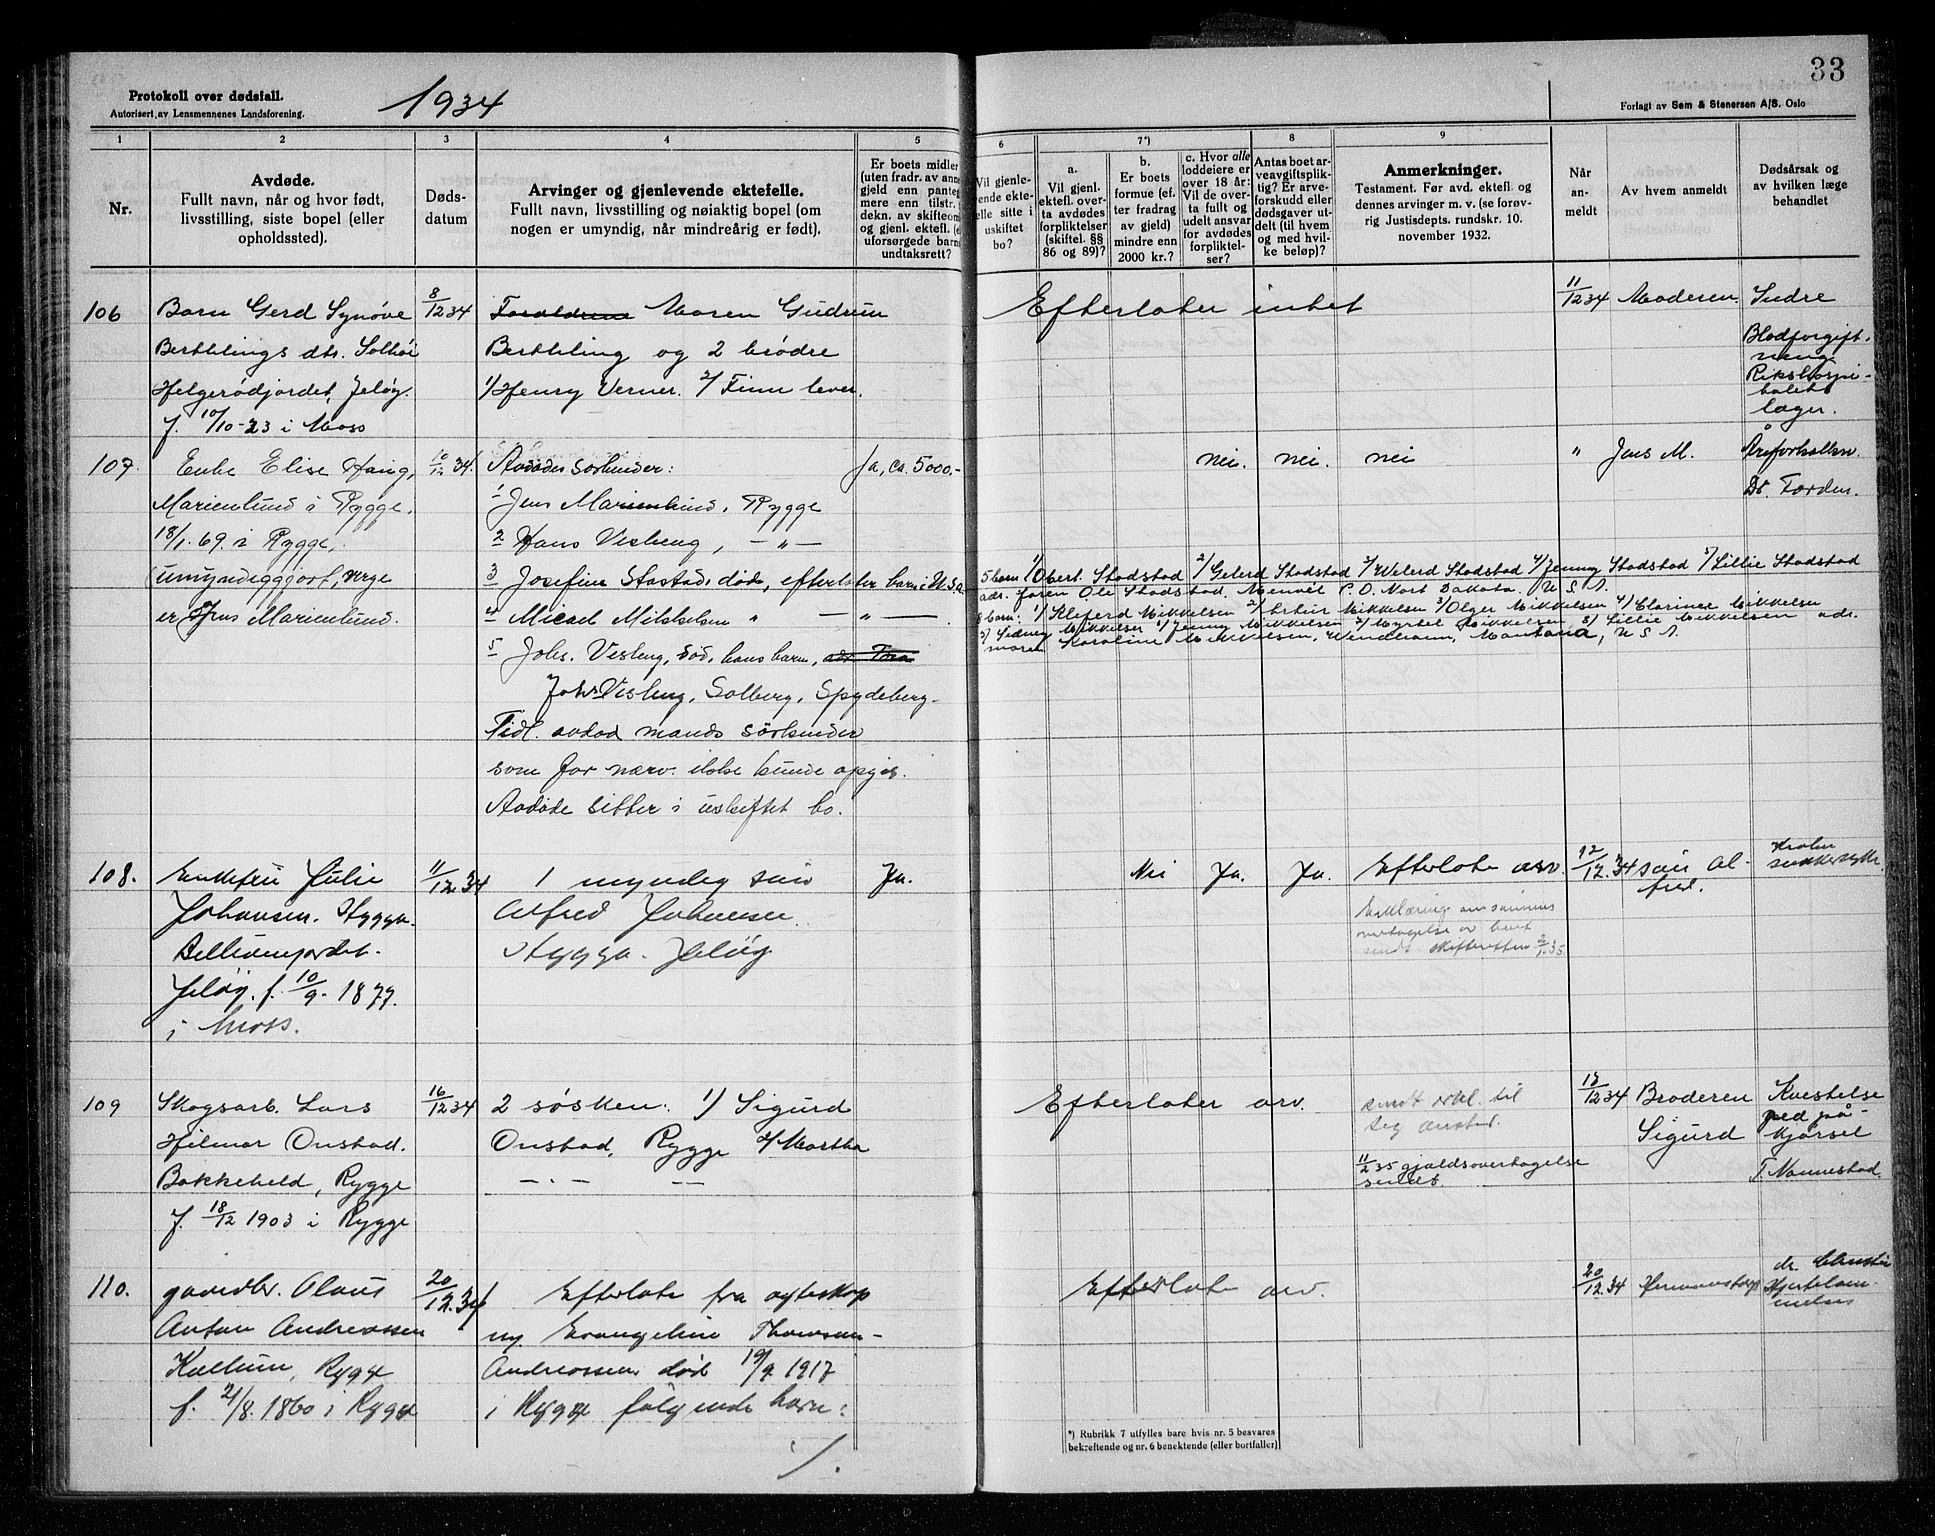 33
Protokoll over dødsfall.
Autorisert av Lensmennenes Landsforening.
1934
Forlagt av Sem & Stenersen A/S. Oslo
1 2 3 4 5 6 7*) 8 9
Nr.
Avdøde.
Fullt navn, når og hvor født,
livsstilling, siste bopel (eller
opholdssted).
Døds-
datum
Arvinger og gjenlevende ektefelle.
Fullt navn, livsstilling og nøiaktig bopel (om
nogen er umyndig, når mindreårig er født).
Er boets midler
(uten fradr. av ann
gjeld enn pante
mere enn tilstr.
dekn. av skifteom
og gjenl. ektefl. (e
uforsørgede barn
undtaksrett?
Vil gjenle-
vende ekte-
elle sitte i
uskiftet
bo?
a.
Vil gjenl.
ektefl. over-
ta avdødes
forpliktelser
(skiftel. §§
86 og 89)?
b.
Er boets
formue (ef-
ter fradrag
av gjeld)
mindre enn
2000 kr.?
c. Hvor alle
loddeiere er
over 18 år:
Vil de over-
ta fullt og
udelt ansvar
for avdødes
forpliktel-
ser?
Antas boet ar-
veavgiftsplik-
tig? Er arve-
forskudd eller
dødsgaver ut-
delt (til hvem
og med hvil-
ke beløp)?
Anmerkninger.
Testament. Før avd. ektefl. og
dennes arvinger m. v. (se forøv-
rig Justisdepts. rundskr. 10.
november 1932.
Når
an-
meldt
Av hvem anmeldt
Dødsårsak og
av hvilken læge
behandlet
106 Barn Gerd Synøve 8/12 34 Foreldrene Moren Gudrun Efterlater intet 11/12 34 Moderen Indre
Berthlings dtr. Solhøi Berthling og 2 brødre Blodforgift-
ning
Helgerødjordet, Jeløy. 1/ Henry Verner. 2/ Finn lever. Rikshospi-
talets
f. 10/10-23 i Moss læger.
107. Enke Elise Haug, 10/12 34. Avdødes søskender: Ja, ca. 5000,- nei. nei. nei " Jens M. Åreforkalkn.
Marienlund i Rygge. 1 Jens Marienlund, Rygge Dr. Torden.
18/1. 69. i Rygge, 2 Hans Visberg, — " —
(umyndiggjort, verge 3 Josefine Stastad, død, efterlater barn i U.S.a 5 barn 1/ Obert Stadstad 2/ Gelerd Stadstad 3/ Welerd Stadstad 4/ Jenny Stadstad 5/ Lillie Stadstad
adr. faren Ole Stadstad, P.O. Nort Dakota. U.S.A.
er Jens Marienlund. 4 Micael Mikkelsen " — " — 8 barn: 1/ Kleferd Mikkelsen 2/ Artur Mikkelsen 3/ Olger Mikkelsen 4/ Clarince Mikkelsen
5/ Sidney Mikkelsen 6/ Jenny Mikkelsen 7/ Myrtel Mikkelsen, 8/ Lillie Mikkelsen adr.
moren Karoline Mikkelsen, Montana, U.S.A.
5 Johs. Visberg, død, hans barn, adr.
Johs Visberg, Solberg, Spydeberg.
Tidl. avdød mands søskender
som for nærv. ikke kunde opgis.
Avdøde sitter i uskiftet bo.
108. Enkefru Julie 11/12.34 1 myndig søn Ja. Nei Ja. Ja. Efterlate arv. 12/12.34 søn Al-
fred. sukkersyke.
Johansen. Hygga. Alfred Johansen Erklæring om sønnens
overtagelse av boet
Jeløy. f. 10/9. 1877. Hygga. Jeløy sendt skifteretten 2/1.35
i Moss.
109 Skogsarb. Lars 16/12 34 2 søsken: 1/ Sigurd Efterlater arv. sendt erkl. til 17/12 34 Broderen Kvestelse
Hilmar Onstad. Onstad, Rygge 2/ Martha Sig. Onstad. Sigurd ved på-
kjørsel
Bakkeheld, Rygge — " — — 11/2 35 gjældsovertagelse
sendt. T. Nannestad.
f. 18/12 1903 i Rygge
110. gårdbr. Olaus 20/12.34 Efterlate fra egteskap Efterlate arv. 20/12.34
Anton Andreassen m/ Evangeline Thomsen-
Kallum, Rygge Andreassen død 19/9 1917
f. 21/8. 1860 i Rygge i Rygge følgende barn:
./.
*) Rubrikk 7 utfylles bare hvis nr. 5 besvares
bekreftende og nr. 6 benektende (eller bortfaller)